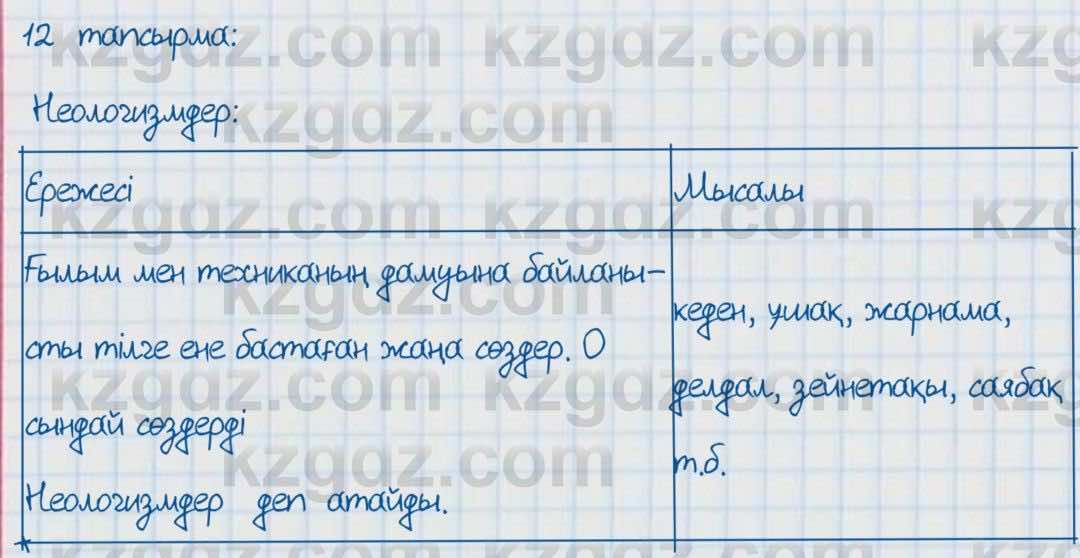 12 тапсырма:
Неологизмдер:
Ережесі
Мысалы
Ғылым мен техниканың дамуына байланы-
сты тілге ене бастаған жаңа сөздер. О
сындай сөздерді
Неологизмдер деп атайды.
кеден, ұшақ, жарнама,
делдал, зейнетақы, саябақ
т.б.
kzgdz.com